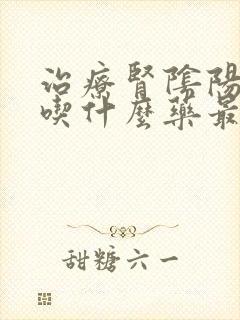 治療腎陰陽
喫什麼藥最
甜糖六一